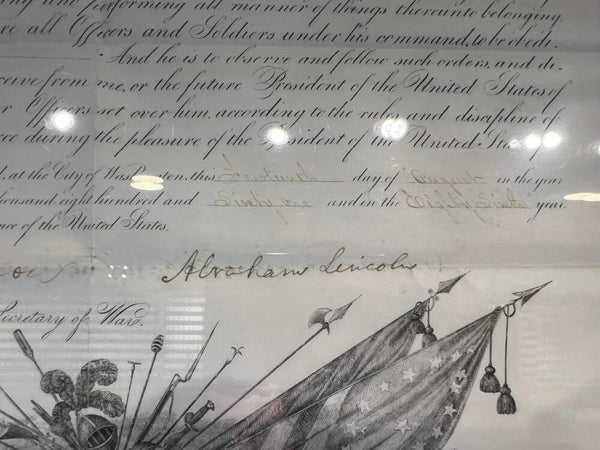 and performing all manner of things thereunto belonging
re all Officers and Soldiers under his command, to be obedi-
And he is to observe and follow such orders, and di-
ceive from me, or the future President of the United States of
r Officers set over him, according to the rules and discipline of
ce during the pleasure of the President of the United States
, at the City of Washington, this day of August in the year
housand eight hundred and Sixty one and in the Eighty Sixth year
nce of the United States.
Abraham Lincoln
Secretary of War.